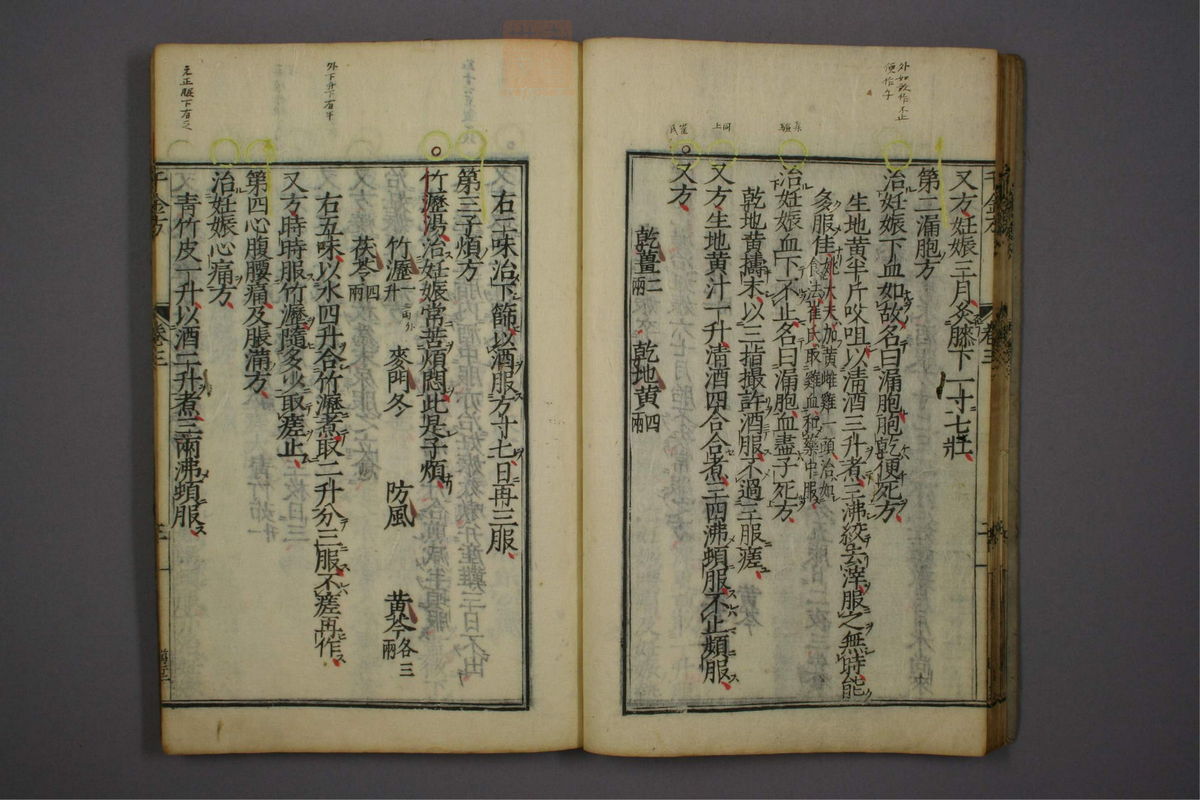 外如故作不止
便作午
又方妊娠三月灸膝下一寸七壯
第二漏胞方
治妊娠下血如故名曰漏胞胞乾便死方
生地黄半斤㕮咀以清酒三升煮三沸絞去滓服之無時能
多服佳姚大夫加黄雌雞一頭治如
食法崔氏取雞血和藥中服
治妊娠血下不止名曰漏胞血盡子死方
乾地黄擣末以三指撮許酒服不過三服瘥
同上
又方生地黄汁一升清酒四合合煮三四沸頻服不止頻服
崔氏
又方
乾薑二兩 乾地黄四兩
右二味治下篩以酒服方寸匕日再三服
第三子煩方
外下升下有半
竹瀝湯治妊娠常苦煩悶此是子煩
竹瀝一升 麥門冬 防風 黄芩各三兩
茯苓四兩
右五味以水四升合竹瀝煮取二升分三服不瘥再作
又方時時服竹瀝隨多少取瘥止
第四心腹腰痛及脹滿方
治妊娠心痛方
青竹皮一升以酒二升煮三兩沸頓服
千金方 卷三 三